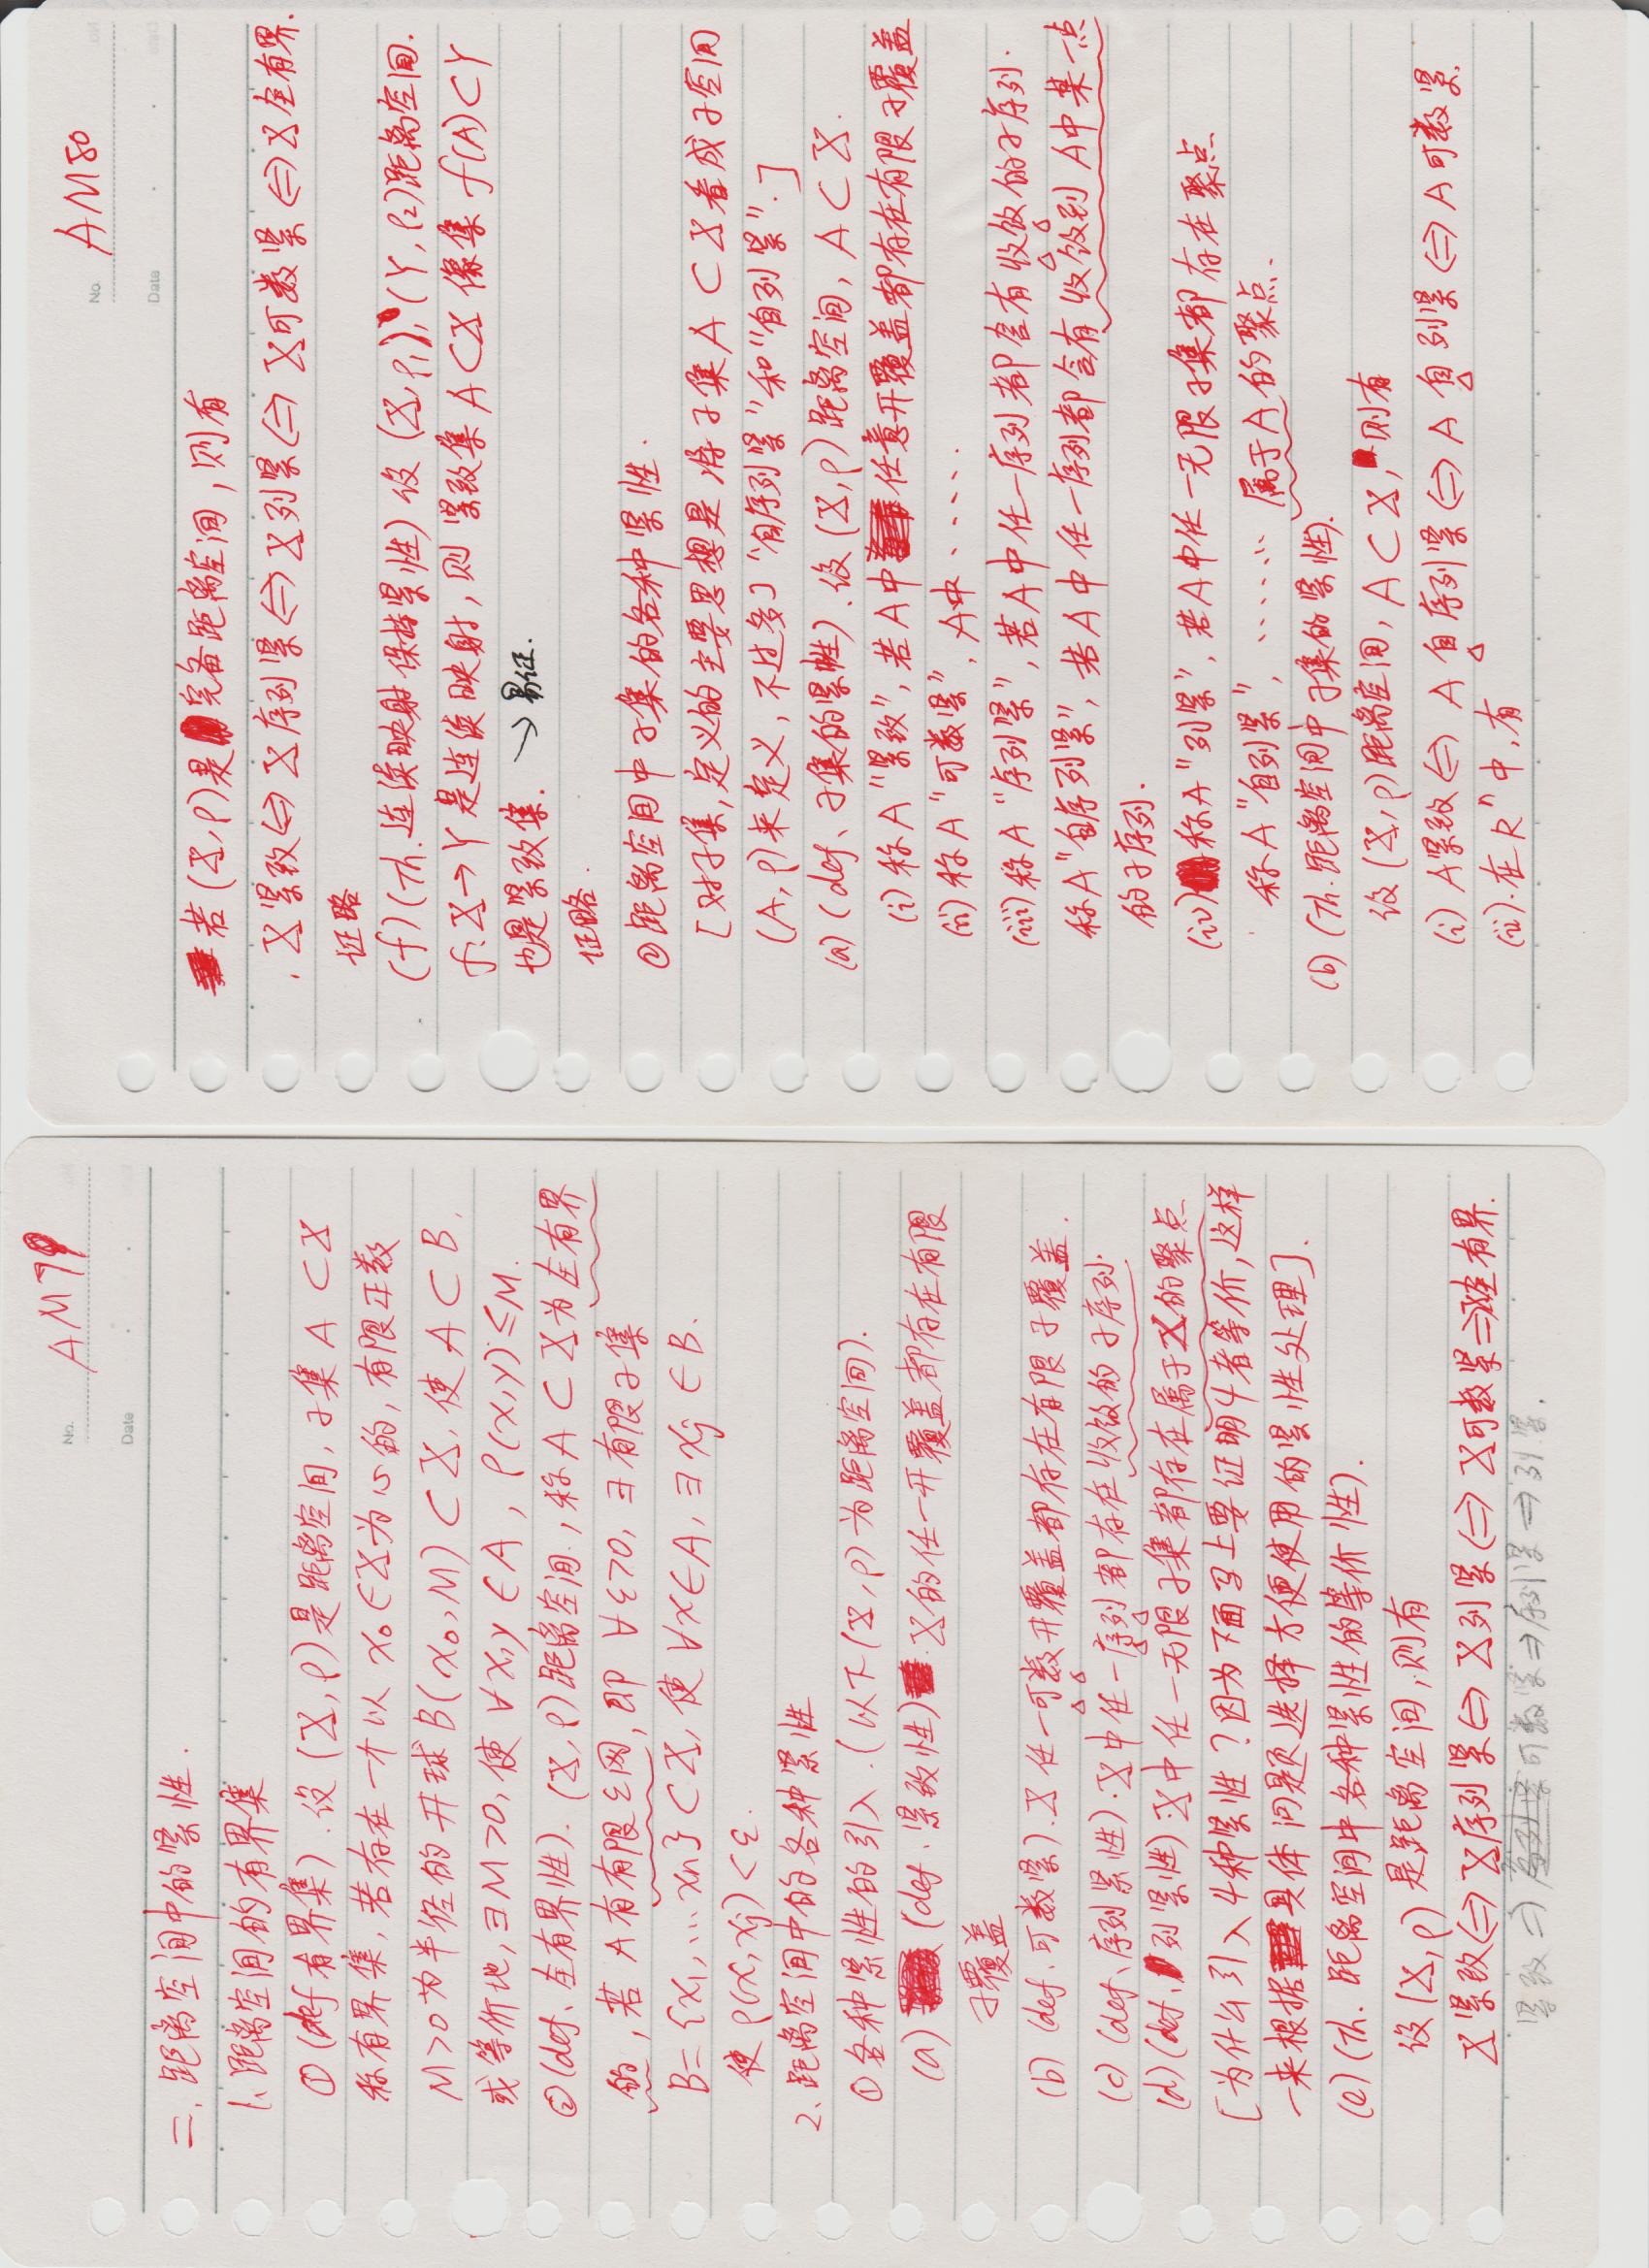 No. AM79
Date
二、距离空间中的紧性.
1、距离空间的有界集
①(def 有界集). 设(X,ρ)是距离空间, 子集 A ⊂ X
称有界集, 若存在一个以 x₀∈X为心的, 有限正数
M>0为半径的开球B(x₀,M)⊂X, 使A⊂B,
或等价地, ∃M>0, 使 ∀x,y∈A, ρ(x,y)≤M.
②(def、全有界性). (X,ρ)距离空间, 称A⊂X为全有界
的, 若 A有有限ε网, 即 ∀ε>0, ∃有限子集
B={x₁,…xn}⊂X, 使 ∀x∈A, ∃xj∈B.
使 ρ(x,xj)<ε.
2、距离空间中的各种紧性
①各种紧性的引入.(以下(X,ρ)为距离空间).
(a) (def. 紧致性) X的任一开覆盖都存在有限
子覆盖
(b) (def、可数紧). X任一可数开覆盖都存在有限子覆盖.
(c) (def、序列紧性). X中任一序列都存在收敛的子序列.
(d) (def、列紧性) X中任一无限子集都存在属于X的聚点
[为什么引入4种紧性?因为下面马上要证明4者等价,这样
一来根据具体问题选择方便使用的紧性处理].
(e) (Th. 距离空间中各种紧性的等价性).
设(X,ρ)是距离空间,则有
X紧致⇔X序列紧⇔X列紧⇔X可数紧⇒X全有界.
紧致⇒可数紧⇒序列紧⇒列紧.
No. AM80
Date
若(X,ρ)是完备距离空间, 则有
X紧致⇔X序列紧⇔X列紧⇔X可数紧⇔X全有界.
证略
(f)(Th. 连续映射保持紧性) 设(X,ρ₁), (Y,ρ₂)距离空间.
f:X→Y是连续映射, 则 紧致集 A⊂X 像集 f(A)⊂Y
也是紧致集. → 易证.
证略.
②距离空间中子集的各种紧性.
[对子集,定义的主要思想是将子集A⊂X看成子空间
(A,ρ)来定义, 不过多了“自序列紧”和“自列紧”.]
(a) (def、子集的紧性). 设(X,ρ)距离空间, A⊂X.
(i) 称A“紧致”, 若A中任意开覆盖都存在有限子覆盖
(ii) 称A“可数紧”, A中……
(iii) 称A“序列紧”, 若A中任一序列都含有收敛的子序列.
称A“自序列紧”, 若A中任一序列都含有收敛到A中某一点
的子序列.
(iv) 称A“列紧”, 若A中任一无限子集都存在聚点
称A“自列紧”, ……… 属于A的聚点.
(b) (Th. 距离空间中子集的紧性).
设(X,ρ)距离空间, A⊂X, 则有
(i) A紧致⇔A自序列紧⇔A自列紧⇔A可数紧.
(ii). 在Rⁿ中, 有